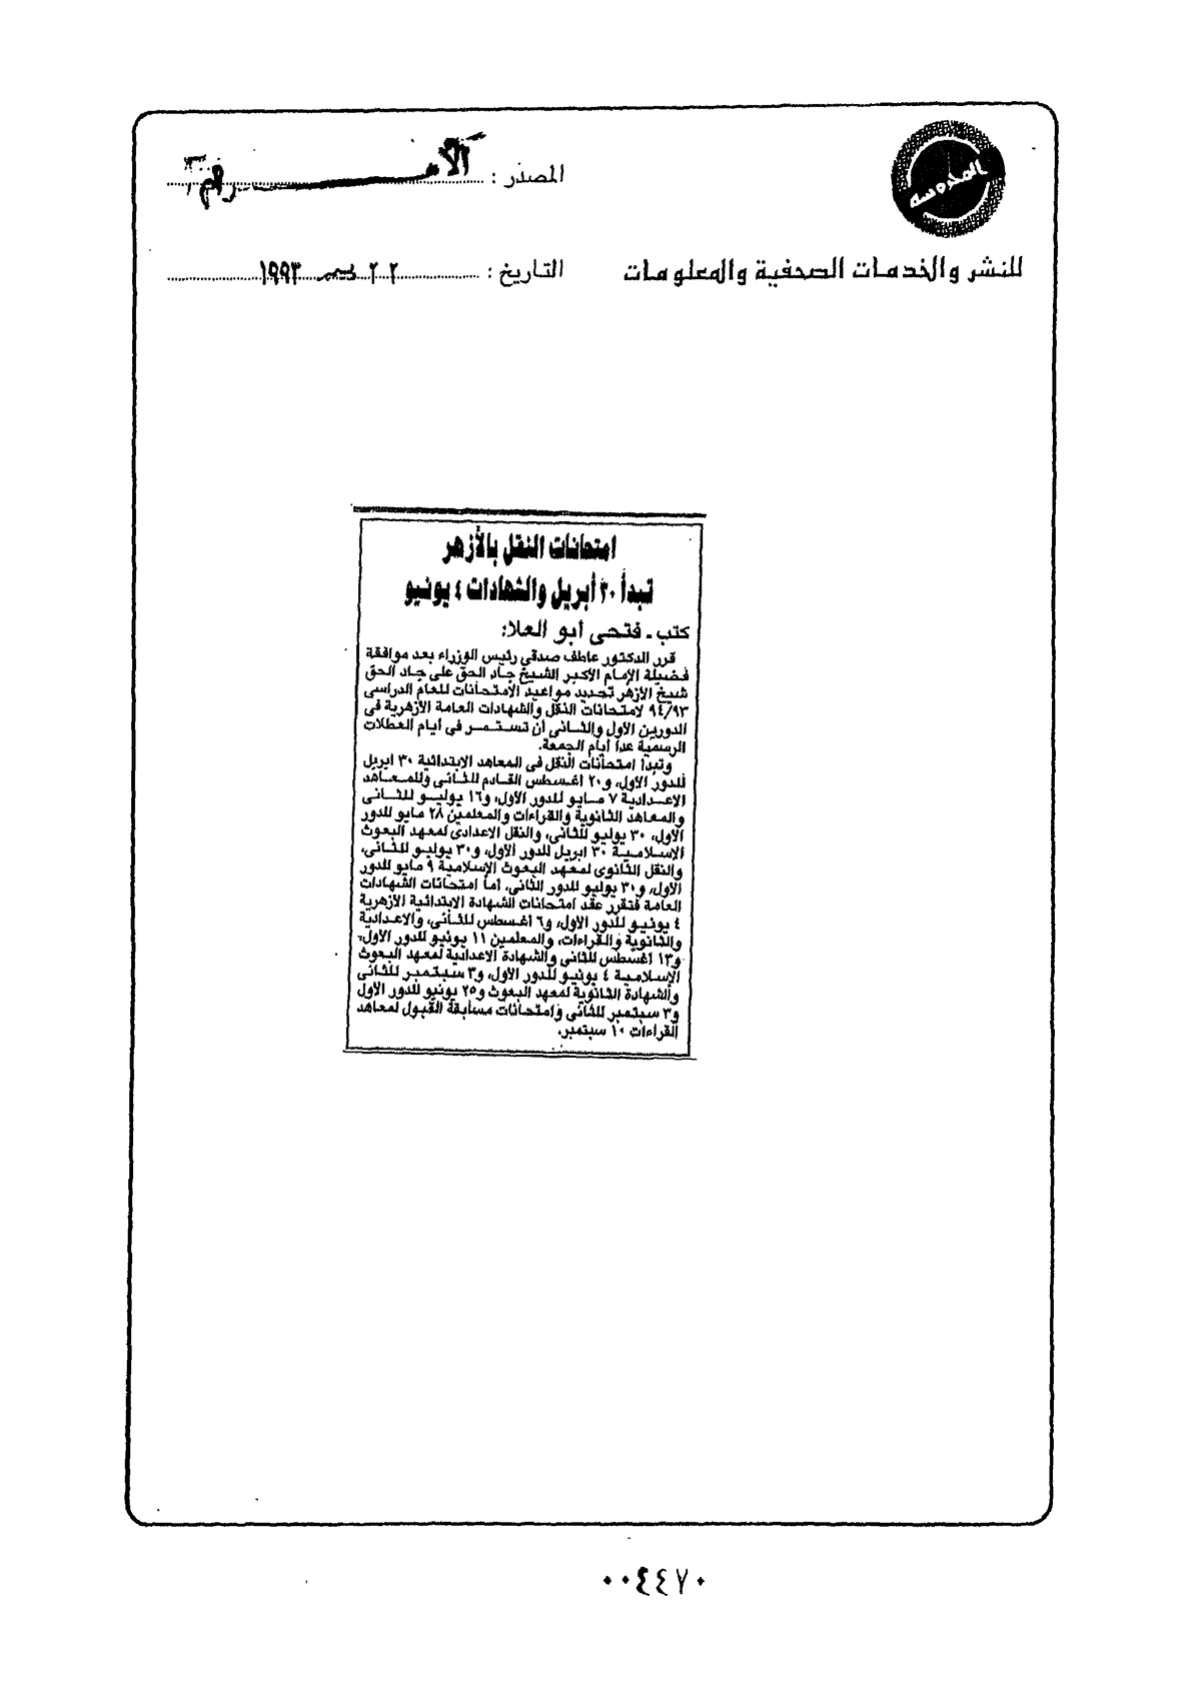 المحروسة
المصدر : الأهرام
للنشر والخدمات الصحفية والمعلومات
التاريخ : ٢٢ ديسمبر ١٩٩٣
امتحانات النقل بالأزهر
تبدأ ٣٠ أبريل والشهادات ٤ يونيو
كتب ـ فتحى أبو العلا:
قرر الدكتور عاطف صدقى رئيس الوزراء بعد موافقة
فضيلة الإمام الأكبر الشيخ جاد الحق على جاد الحق
شيخ الأزهر تحديد مواعيد الامتحانات للعام الدراسى
٩٤/٩٣ لامتحانات النقل والشهادات العامة الأزهرية فى
الدورين الأول والثانى أن تستمر فى أيام العطلات
الرسمية عدا أيام الجمعة.
وتبدأ امتحانات النقل فى المعاهد الابتدائية ٣٠ ابريل
للدور الأول، و٢٠ اغسطس القادم للثانى وللمعاهد
الاعدادية ٧ مايو للدور الأول، و١٦ يوليو للثانى
والمعاهد الثانوية والقراءات والمعلمين ٢٨ مايو للدور
الأول، ٣٠ يوليو للثانى، والنقل الاعدادى لمعهد البعوث
الإسلامية ٣٠ ابريل للدور الأول، و٣٠ يوليو للثانى،
والنقل الثانوى لمعهد البعوث الإسلامية ٩ مايو للدور
الأول، و٣٠ يوليو للدور الثانى، أما امتحانات الشهادات
العامة فتقرر عقد امتحانات الشهادة الابتدائية الأزهرية
٤ يونيو للدور الأول، و٦ اغسطس للثانى، والاعدادية
والثانوية والقراءات، والمعلمين ١١ يونيو للدور الأول،
و١٣ اغسطس للثانى والشهادة الاعدادية لمعهد البعوث
الإسلامية ٤ يونيو للدور الأول، و٣ سبتمبر للثانى
والشهادة الثانوية لمعهد البعوث و٢٥ يونيو للدور الأول
و٣ سبتمبر للثانى وامتحانات مسابقة القبول لمعاهد
القراءات ١٠ سبتمبر.
٠٠٤٤٧٠